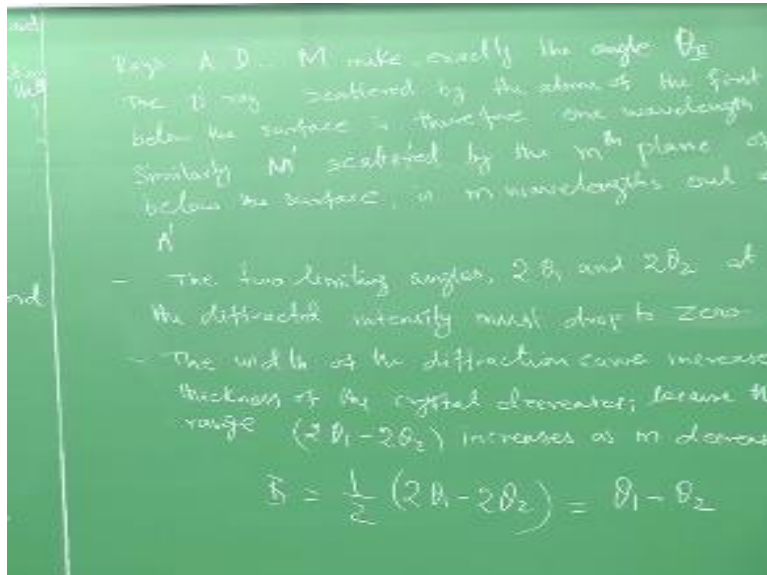 Rays A D... M make exactly the angle θ_B
The D' ray scattered by the atoms of the first
below the surface is therefore one wavelength
Similarly M' scattered by the mth plane of
below the surface, is m wavelengths out
A'
- The two limiting angles, 2θ₁ and 2θ₂ at
the diffracted intensity must drop to zero
- The width of the diffraction curve increase
thickness of the crystal decreases, because th
range (2θ₁-2θ₂) increases as m decreas
B = 1/2 (2θ₁-2θ₂) = θ₁-θ₂
nd